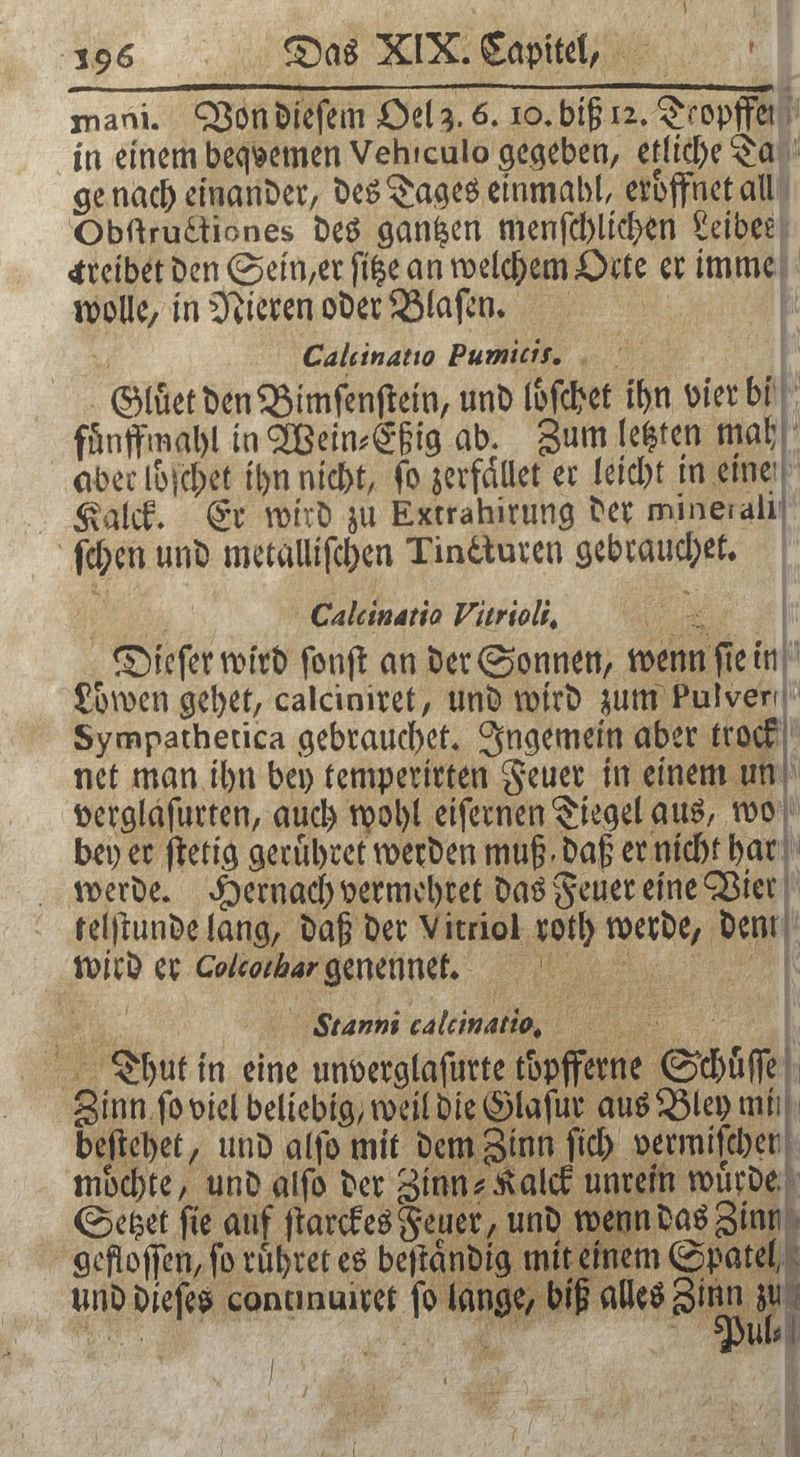 196 Das XIX. Capitel,
mani. Von diesem Oel 3. 6. 10. biß 12. Tropffen
in einem beqvemen Vehiculo gegeben, etliche Ta
ge nach einander, des Tages einmahl, eröffnet all
Obstructiones des gantzen menschlichen Leibes
treibet den Stein, er sitze an welchem Orte er imme
wolle, in Nieren oder Blasen.
Calcinatio Pumicis.
Glüet den Bimsenstein, und löschet ihn vier bi
fünffmahl in Wein-Eßig ab. Zum letzten mahl
aber löschet ihn nicht, so zerfället er leicht in einen
Kalck. Er wird zu Extrahirung der minerali
schen und metallischen Tincturen gebrauchet.
Calcinatio Vitrioli.
Dieser wird sonst an der Sonnen, wenn sie in
Löwen gehet, calciniret, und wird zum Pulver
Sympathetica gebrauchet. Ingemein aber trock
net man ihn bey temperirten Feuer in einem un
verglasurten, auch wohl eisernen Tiegel aus, wo
bey er stetig gerühret werden muß, daß er nicht har
werde. Hernach vermehret das Feuer eine Vier
telstunde lang, daß der Vitriol roth werde, denn
wird er Colcothar genennet.
Stanni calcinatio.
Thut in eine unverglasurte töpfferne Schüsse
Zinn so viel beliebig, weil die Glasur aus Bley mit
bestehet, und also mit dem Zinn sich vermischen
möchte, und also der Zinn-Kalck unrein würde.
Setzet sie auf starckes Feuer, und wenn das Zinn
geflossen, so rühret es beständig mit einem Spatel,
und dieses continuiret so lange, biß alles Zinn zu
Pul-